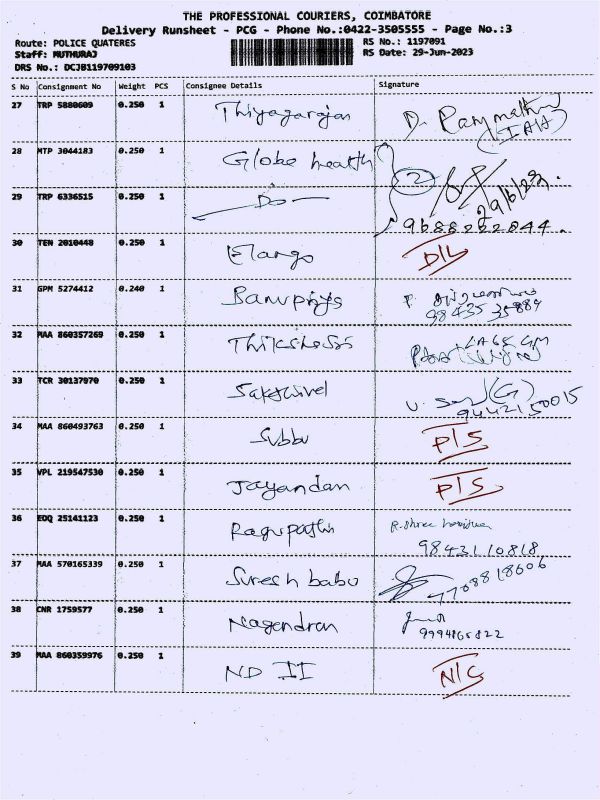 THE PROFESSIONAL COURIERS, COIMBATORE
Delivery Runsheet - PCG - Phone No.:0422-3505555 - Page No.:3
Route: POLICE QUATERES
Staff: MUTHURAJ
DRS No.: DCJB119709103
RS No.: 1197091
RS Date: 29-Jun-2023
S No Consignment No Weight PCS Consignee Details Signature
27 TRP 5880609 0.250 1 Thiyagarajan
28 MTP 3044183 0.250 1 Globe health 2
29 TRP 6336515 0.250 1 Do 29/6/23
9688222844
30 TEN 2010448 0.250 1 Elango D/L
31 GPM 5274412 0.240 1 Banupriya
98435 35889
32 MAA 860357269 0.250 1
33 TCR 30137970 0.250 1 Sakthivel (G)
9442150015
34 MAA 860493763 0.250 1 Subbu P/S
35 VPL 219547530 0.250 1 Jayandan P/S
36 EOQ 25141123 0.250 1 Ragupathi R. Shree
98431 10818
37 MAA 570165339 0.250 1 Suresh babu 7708818606
38 CNR 1759577 0.250 1 Nagendran
9994165822
39 MAA 860359976 0.250 1 ND II N/C